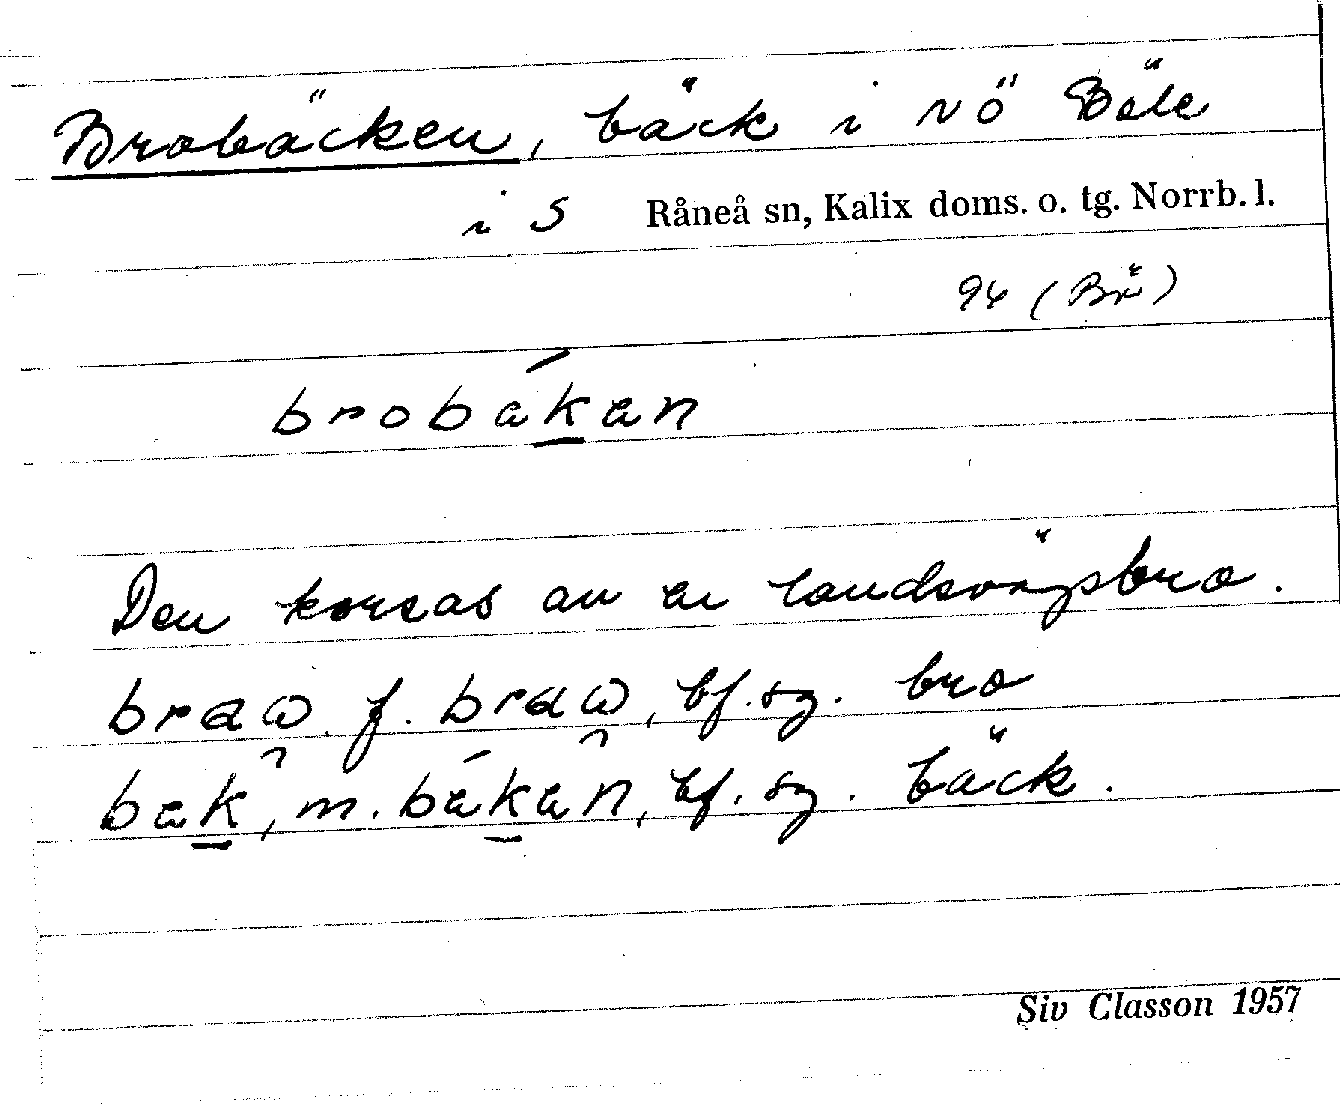 Brobäcken, bäck i NÖ Böle
i S Råneå sn, Kalix doms. o. tg. Norrb. l.
94 (Bä)
brobákan
Den korsas av en landsvägsbro.
braω f. braω, bf. sg. bro
bak, m. bákan, bf. sg. bäck.
Siv Classon 1957